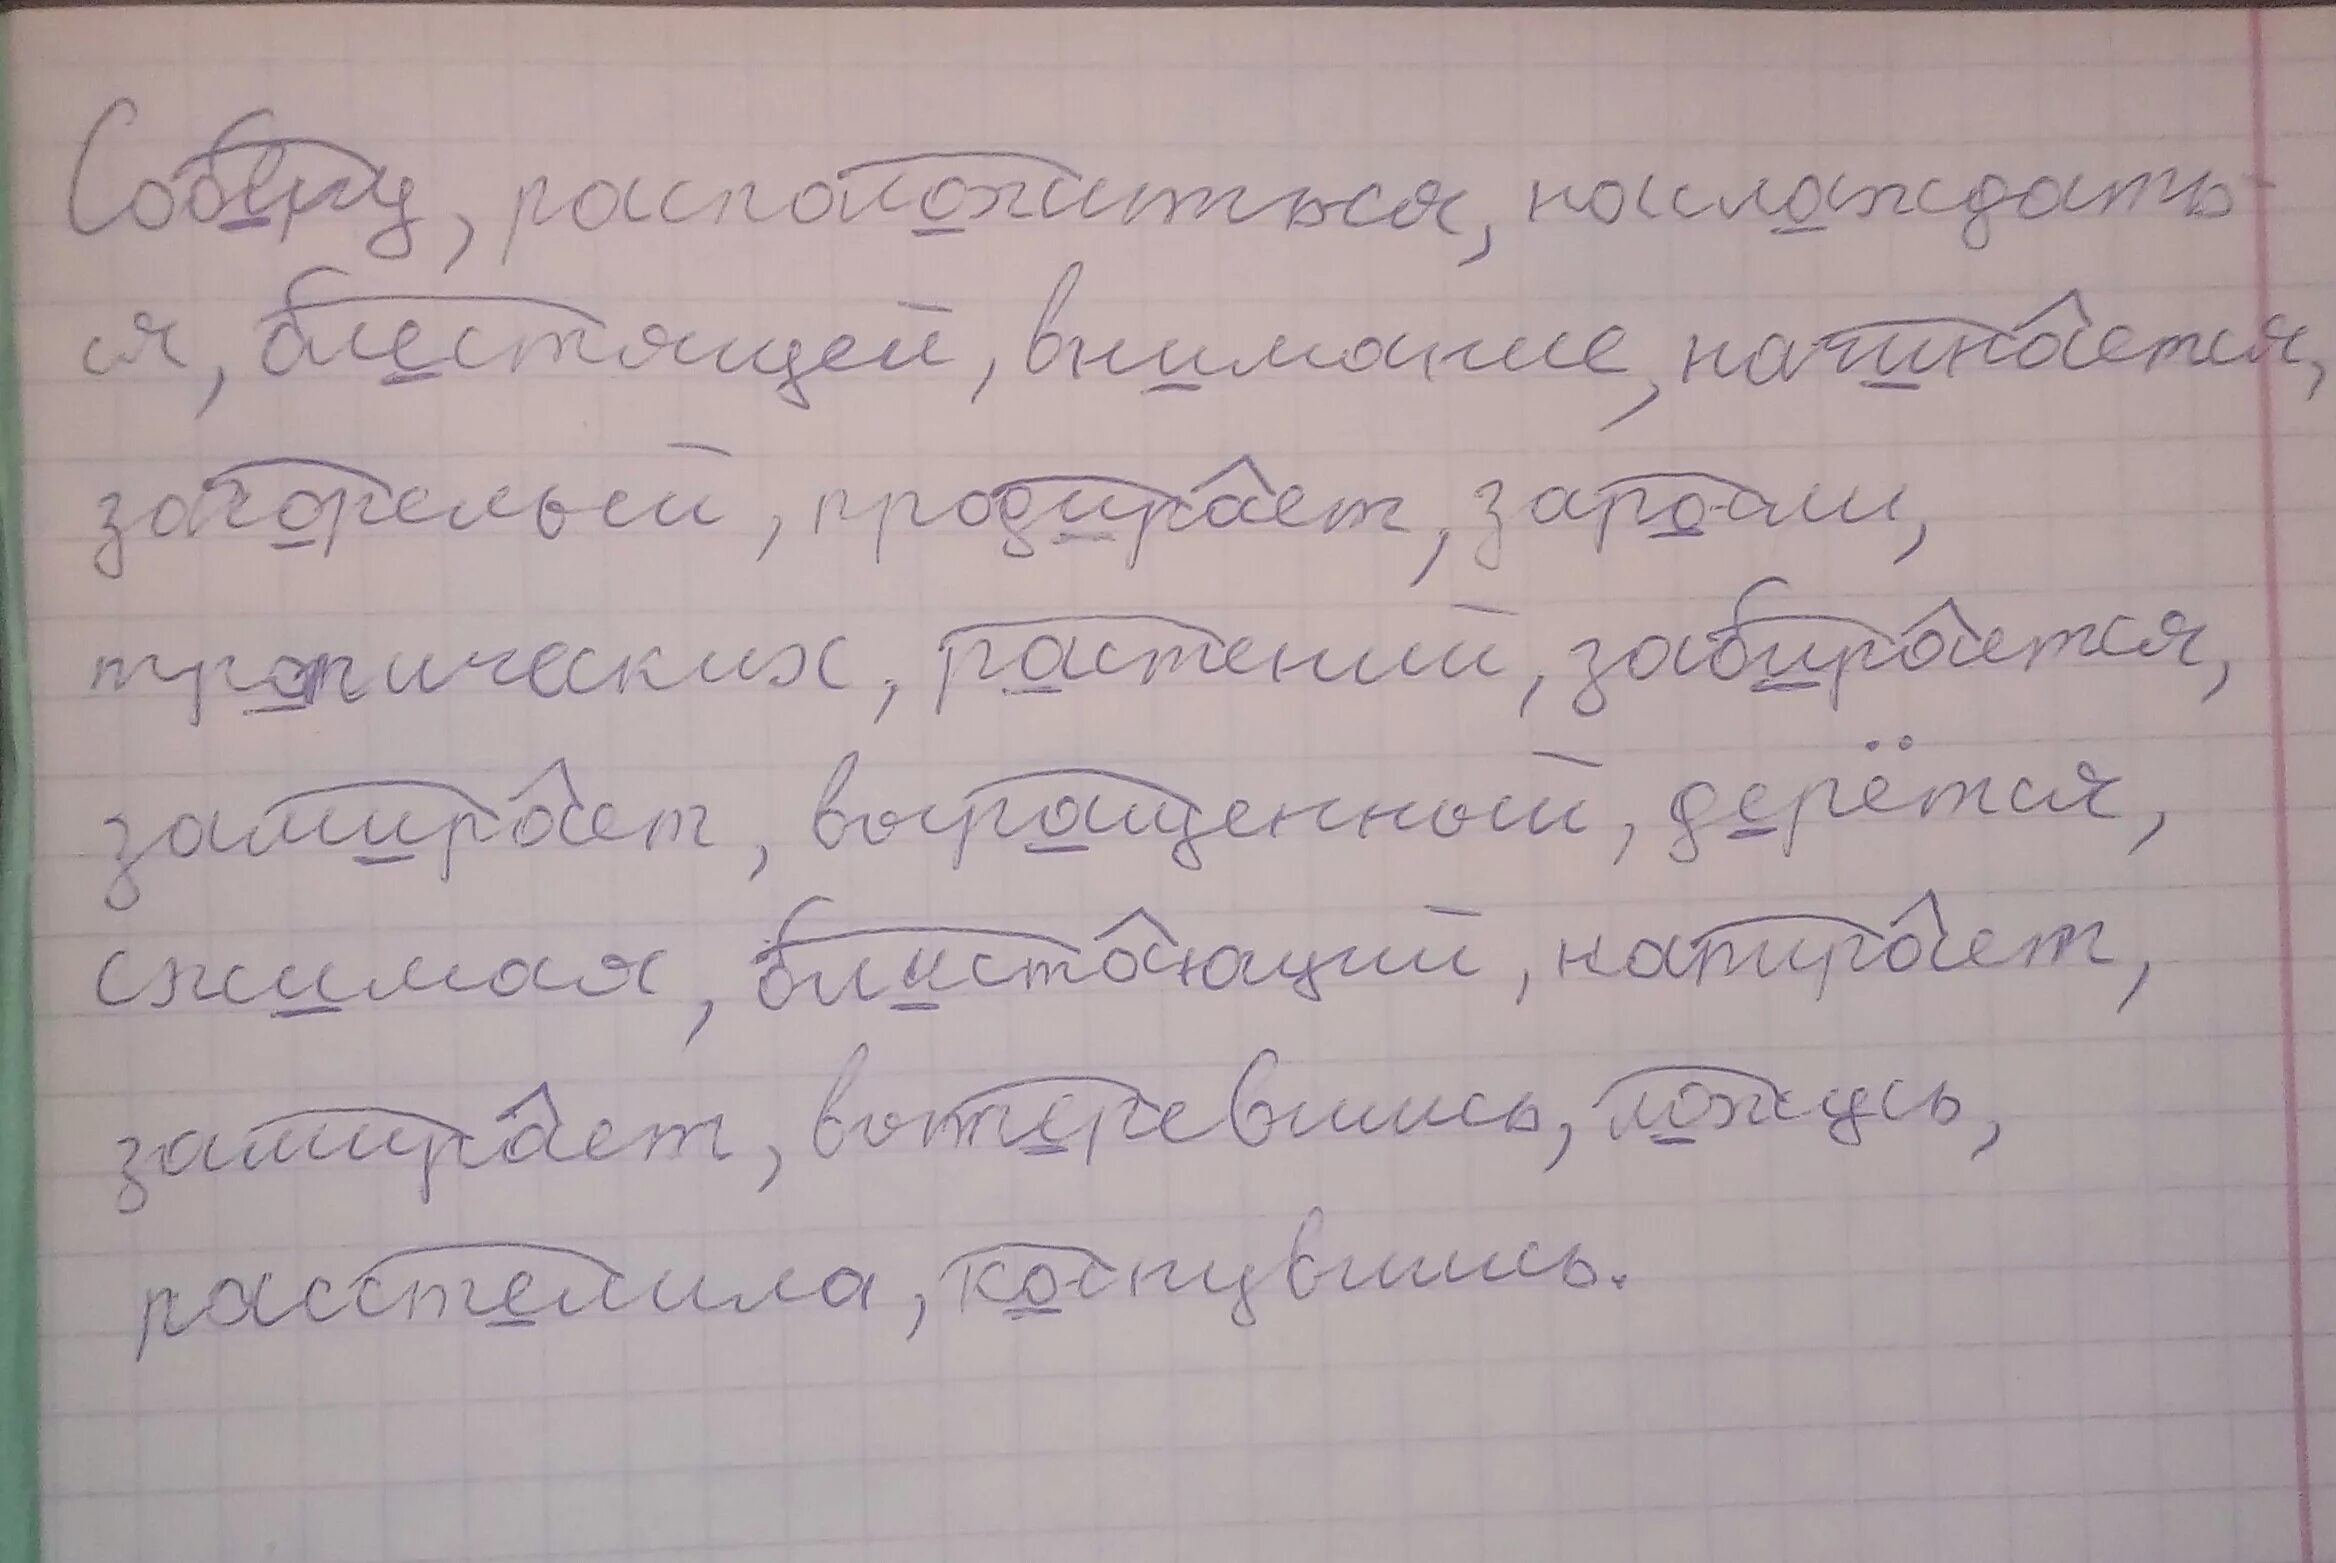 Собиру, расположиться, наслаждать-
ся, блестящей, внимание, начинается,
загорелый, продирает, заросли,
тропических, растений, забирается,
замирает, выращенный, дерётся,
сжимая, блистающий, натирает,
замирает, вытеревшись, ложусь,
расстелила, коснувшись.